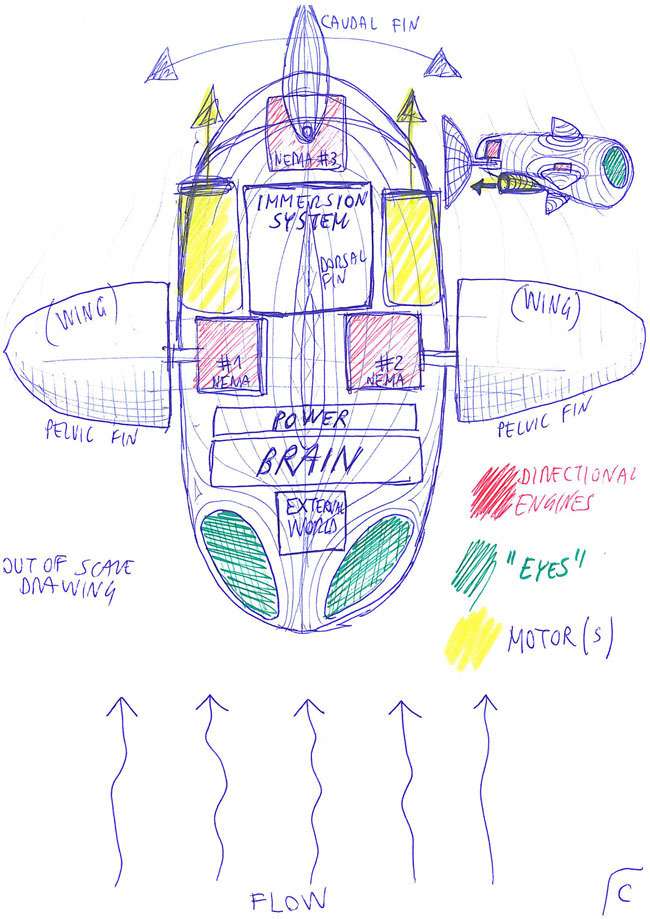 CAUDAL FIN
NEMA #3
IMMERSION
SYSTEM
DORSAL
FIN
(WING)
(WING)
#1
NEMA
#2
NEMA
PELVIC FIN
PELVIC FIN
POWER
BRAIN
EXTERNAL
WORLD
DIRECTIONAL
ENGINES
"EYES"
MOTOR(S)
OUT OF SCALE
DRAWING
FLOW
C